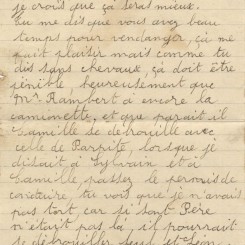 je crois que ça serais mieux.
Tu me dis que vous avez beau
temps pour vendanger, ça me
fait plaisir mais comme tu
dis sans chevaux, ça doit être
pénible, heureusement que
Mr Rambert à encore la
camionette, et que parait il
Camille de debrouille avec
celle de Parpite, lorsque je
disait à Sylvain et à
Camille, passez le permis de
conduire, tu vois que je n'avais
pas tort, car si sont Père
n'était pas là, il pourrait
se debrouiller seul et